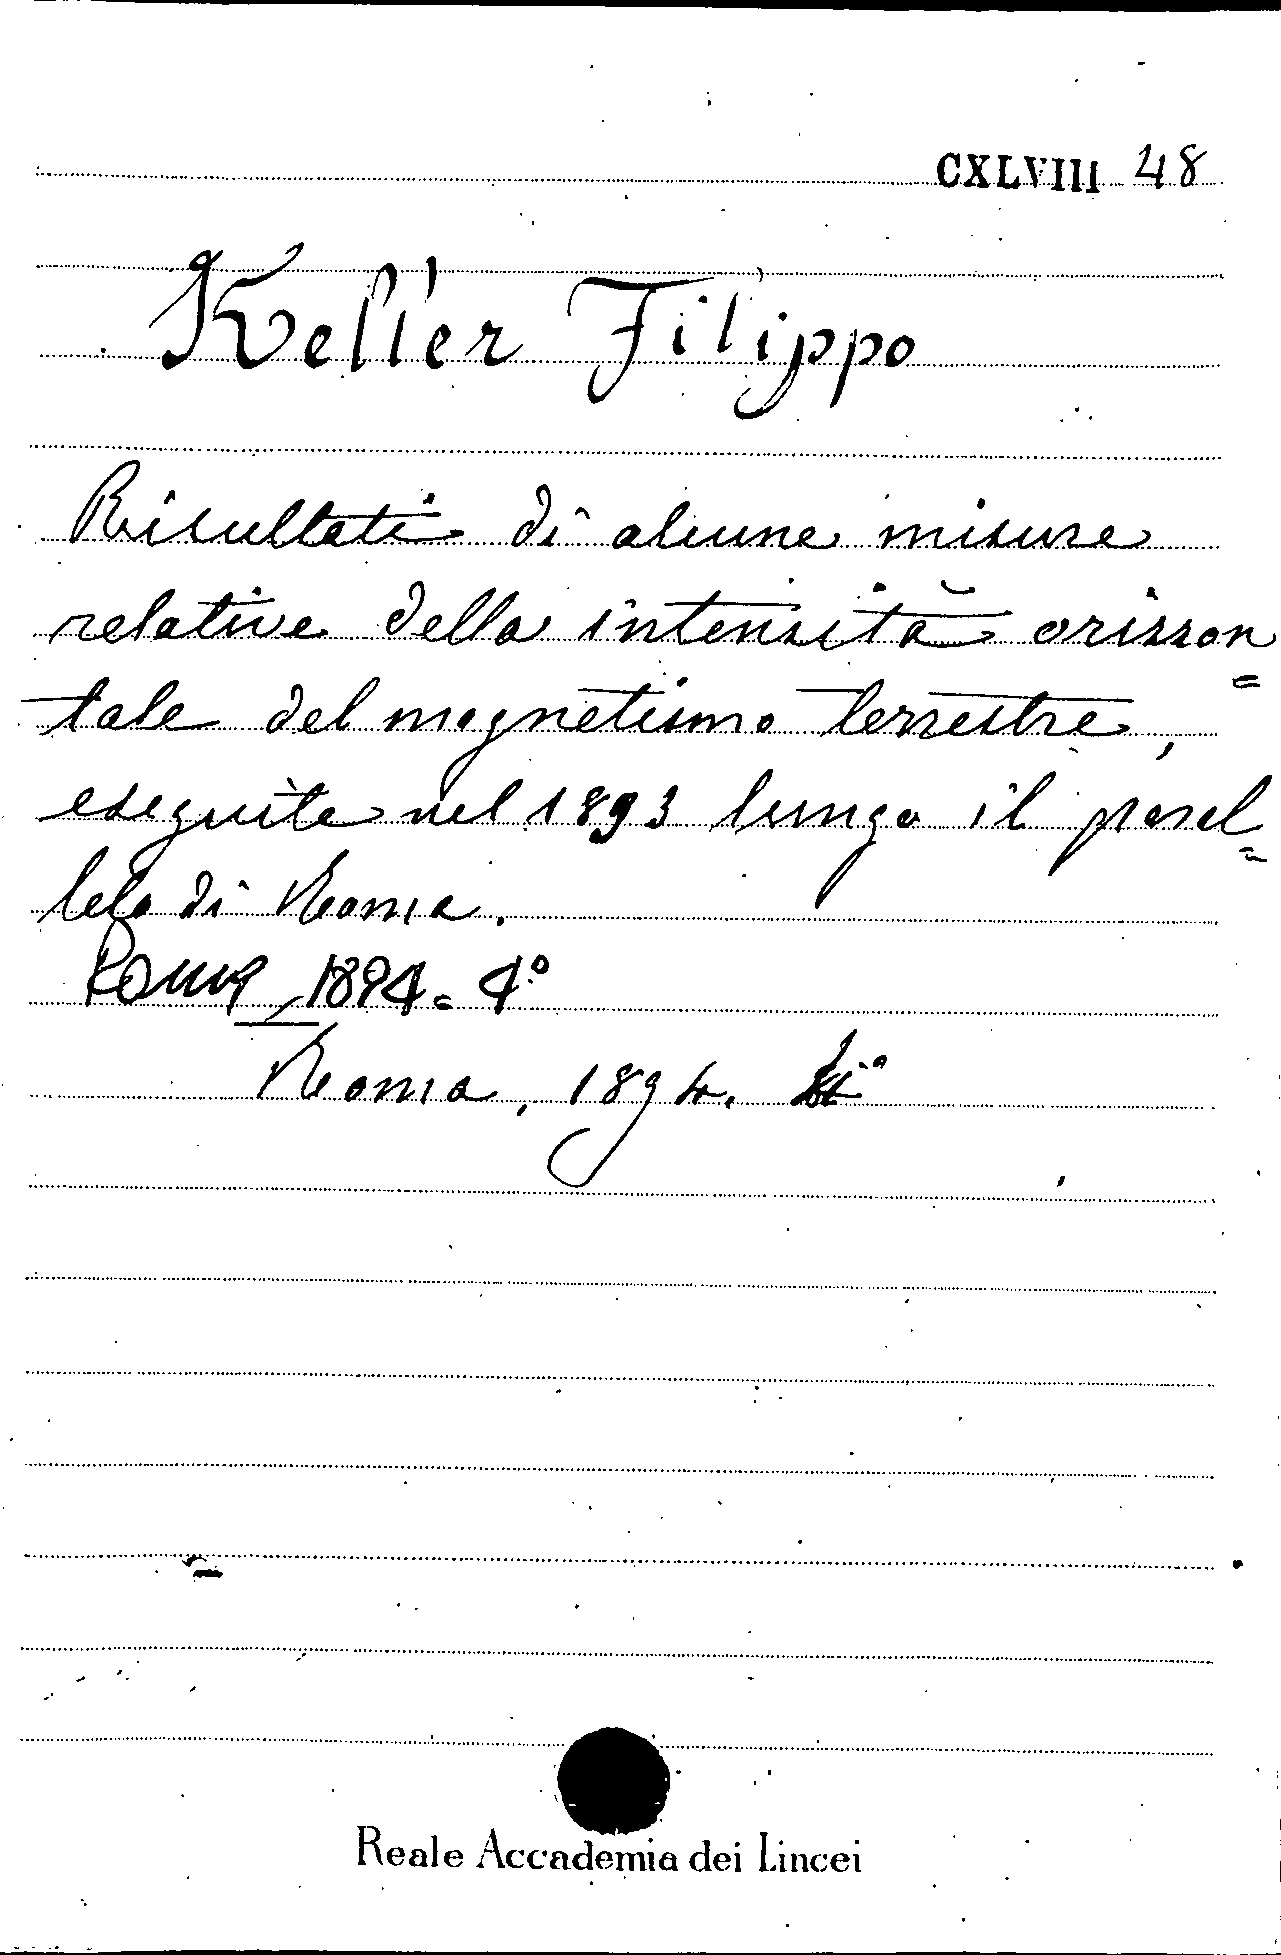 CXLVIII 48
Keller Filippo
Risultati di alcune misure
relative della intensità orizzon=
tale del magnetismo terrestre,
eseguite nel 1893 lungo il paral=
lelo di Roma.
Roma, 1894 = 4°
Roma, 1894.
Reale Accademia dei Lincei